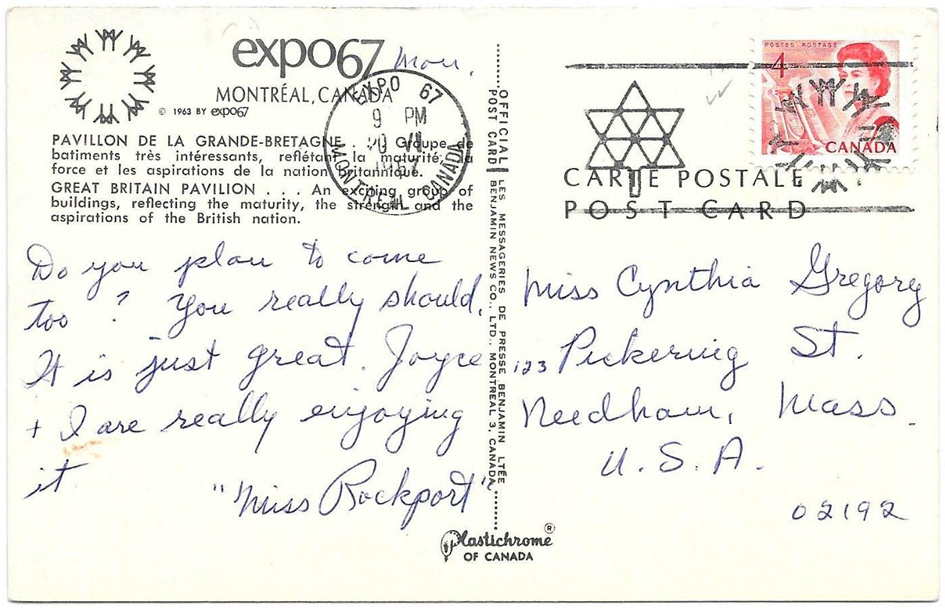 expo67
MONTRÉAL, CANADA
© 1963 BY expo67
Mon.
EXPO 67
9 PM
20 VI
MONTREAL CANADA
POSTES POSTAGE
4
CANADA
CARTE POSTALE
POST CARD
PAVILLON DE LA GRANDE-BRETAGNE . . . Groupe de
batiments très intéressants, reflétant la maturité, la
force et les aspirations de la nation britannique.
GREAT BRITAIN PAVILION . . . An exciting group of
buildings, reflecting the maturity, the strength and the
aspirations of the British nation.
Do you plan to come
too? You really should.
It is just great. Joyce
+ I are really enjoying
it.
"Miss Rockport"
OFFICIAL POST CARD
LES MESSAGERIES DE PRESSE BENJAMIN LTÉE
BENJAMIN NEWS CO., LTD., MONTREAL 3, CANADA
Miss Cynthia Gregory
123 Pickering St.
Needham, Mass.
U.S.A.
02192
Plastichrome®
OF CANADA